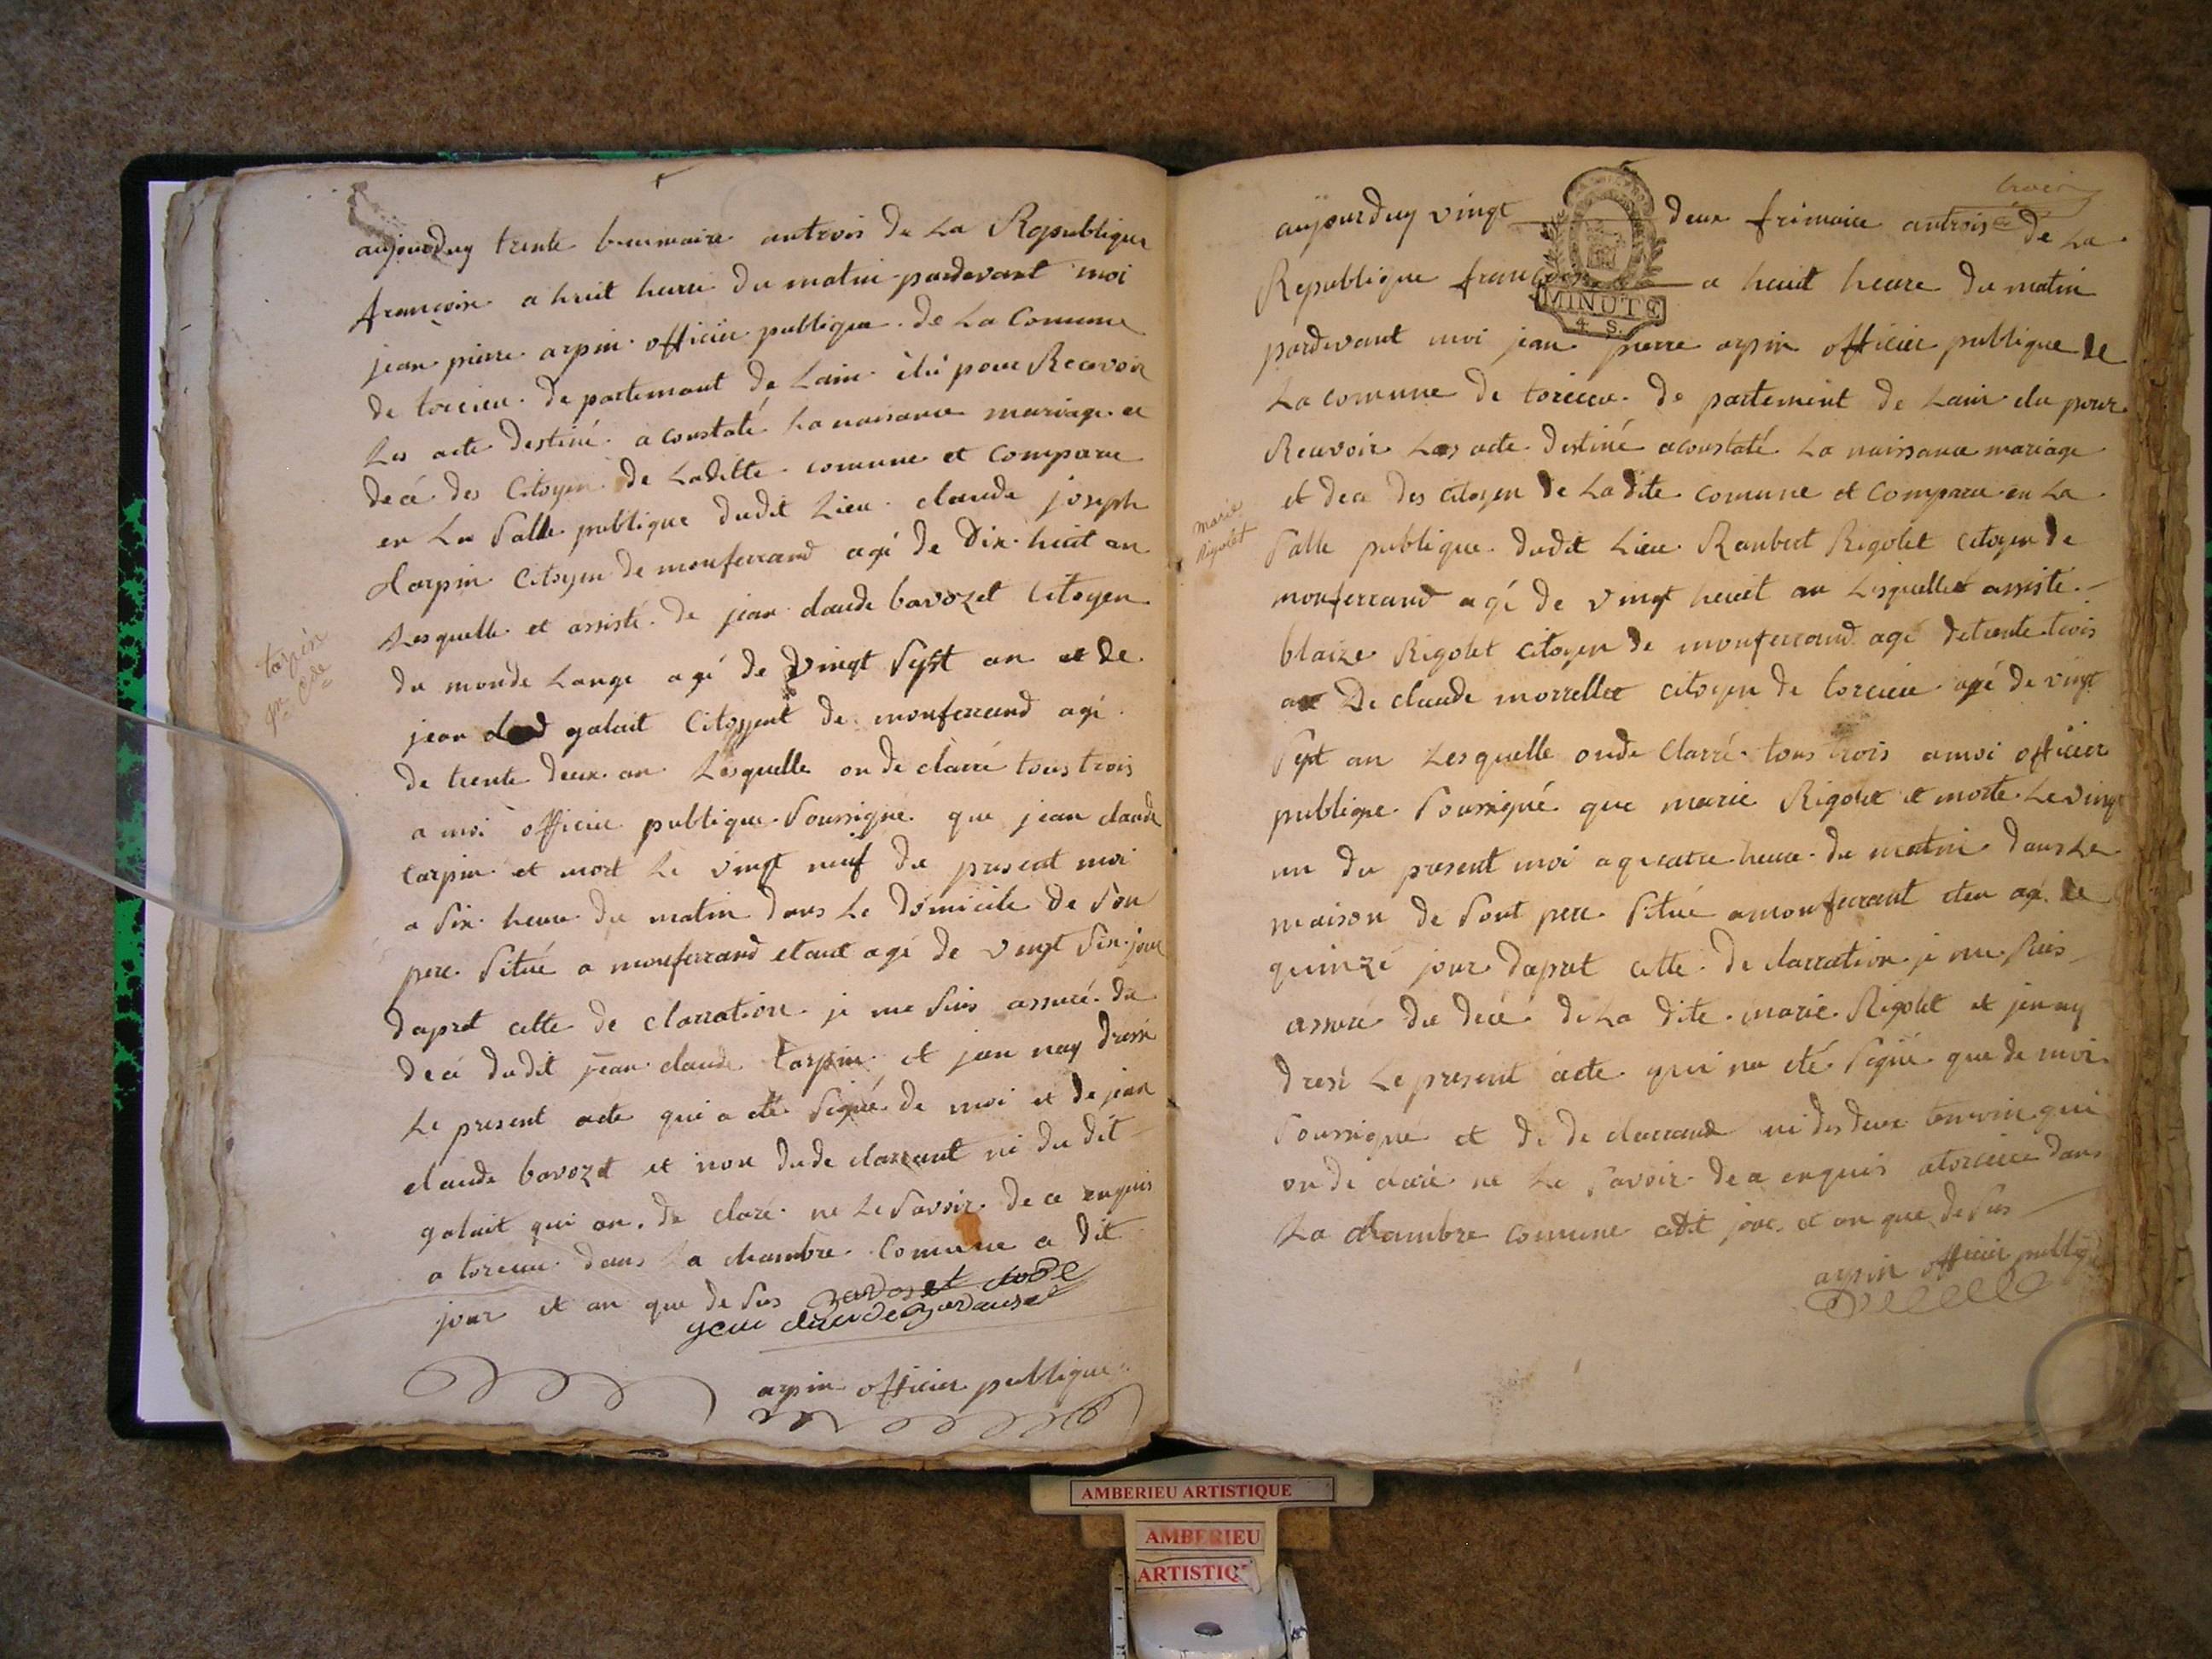 aujourduy trente brumaire antrois de La Republique
françoise a huit heure du matin pardevant moi
jean pierre arpin officier publique de La Comune
de torcieu departemant de Lain élu pour Recevoir
Les acte destiné a constaté La naisance mariage et
decé des Citoyen de Laditte comune et comparu
en La Salle publique dudit Lieu claude joseph
tarpin Citoyen de monferrand agé de Dix huit an
Lesquelle et assisté de jean claude bavozet Citoyen
du monde Lange agé de vingt Sept an et de
jean galait Citoyent de monferrand agé
de trente deux an Lesquelle on de claré tous trois
a moi officier publique Soussigne que jean claude
tarpin et mort Le vingt neuf du present moi
a Six heure du matin dans Le domicile de Son
pere Situé a monferrand etant agé de vingt Six jour
daprat cette de clarration je me Suis assuré du
decé dudit jean claude tarpin et jan nay dressé
Le present acte qui a eté Signé de moi et de jean
claude bavozet et non dude clarrant ni du dit
galait qui on de claré ne Le Savoir de ce enquis
a torcieu dans La chambre Comune a dit
jour et an que de Sus
jean claude
arpin officier publique
tarpin
jn Cde
troi
aujourduy vingt deux frimaire antrois de La
MINUTE
4 S.
Republique françoise a heuit heure du matin
pardevant moi jean pierre arpin officier publique de
La comune de torcieu de partement de Lain elu pour
Recevoir Les acte destiné aconstaté La naissance mariage
et decé des citoyen de La dite comune et comparu en La
Salle publique dudit Lieu Ranbert Rigolet citoyen de
monferrand agé de vingt heuit an Lesquelle assisté
blaize Rigolet citoyen de monferrand agé detrente trois
an De claude morrellet citoyen de torcieu agé de vingt
Sept an Lesquelle onde Clarré tous trois amoi officier
publique Soussigné que marie Rigolet et morte Le vingt
un du present moi a quatre heure du matin dans Le
maison de Sont pere Situé amonferrant agé de
quinzé jour daprat cette de clarration je me Suis
assuré du decé de La dite marie Rigolet et jenay
dresé Le present acte qui na eté Signé que de moi
Soussigné et de de clarrand ni des deux temoin qui
on de claré ne Le Savoir de ce enquis atorcieu dans
La chambre comune jour et an que de Sus
arpin officier publiq
marie
Rigolet
AMBERIEU ARTISTIQUE
AMBERIEU
ARTISTIQ